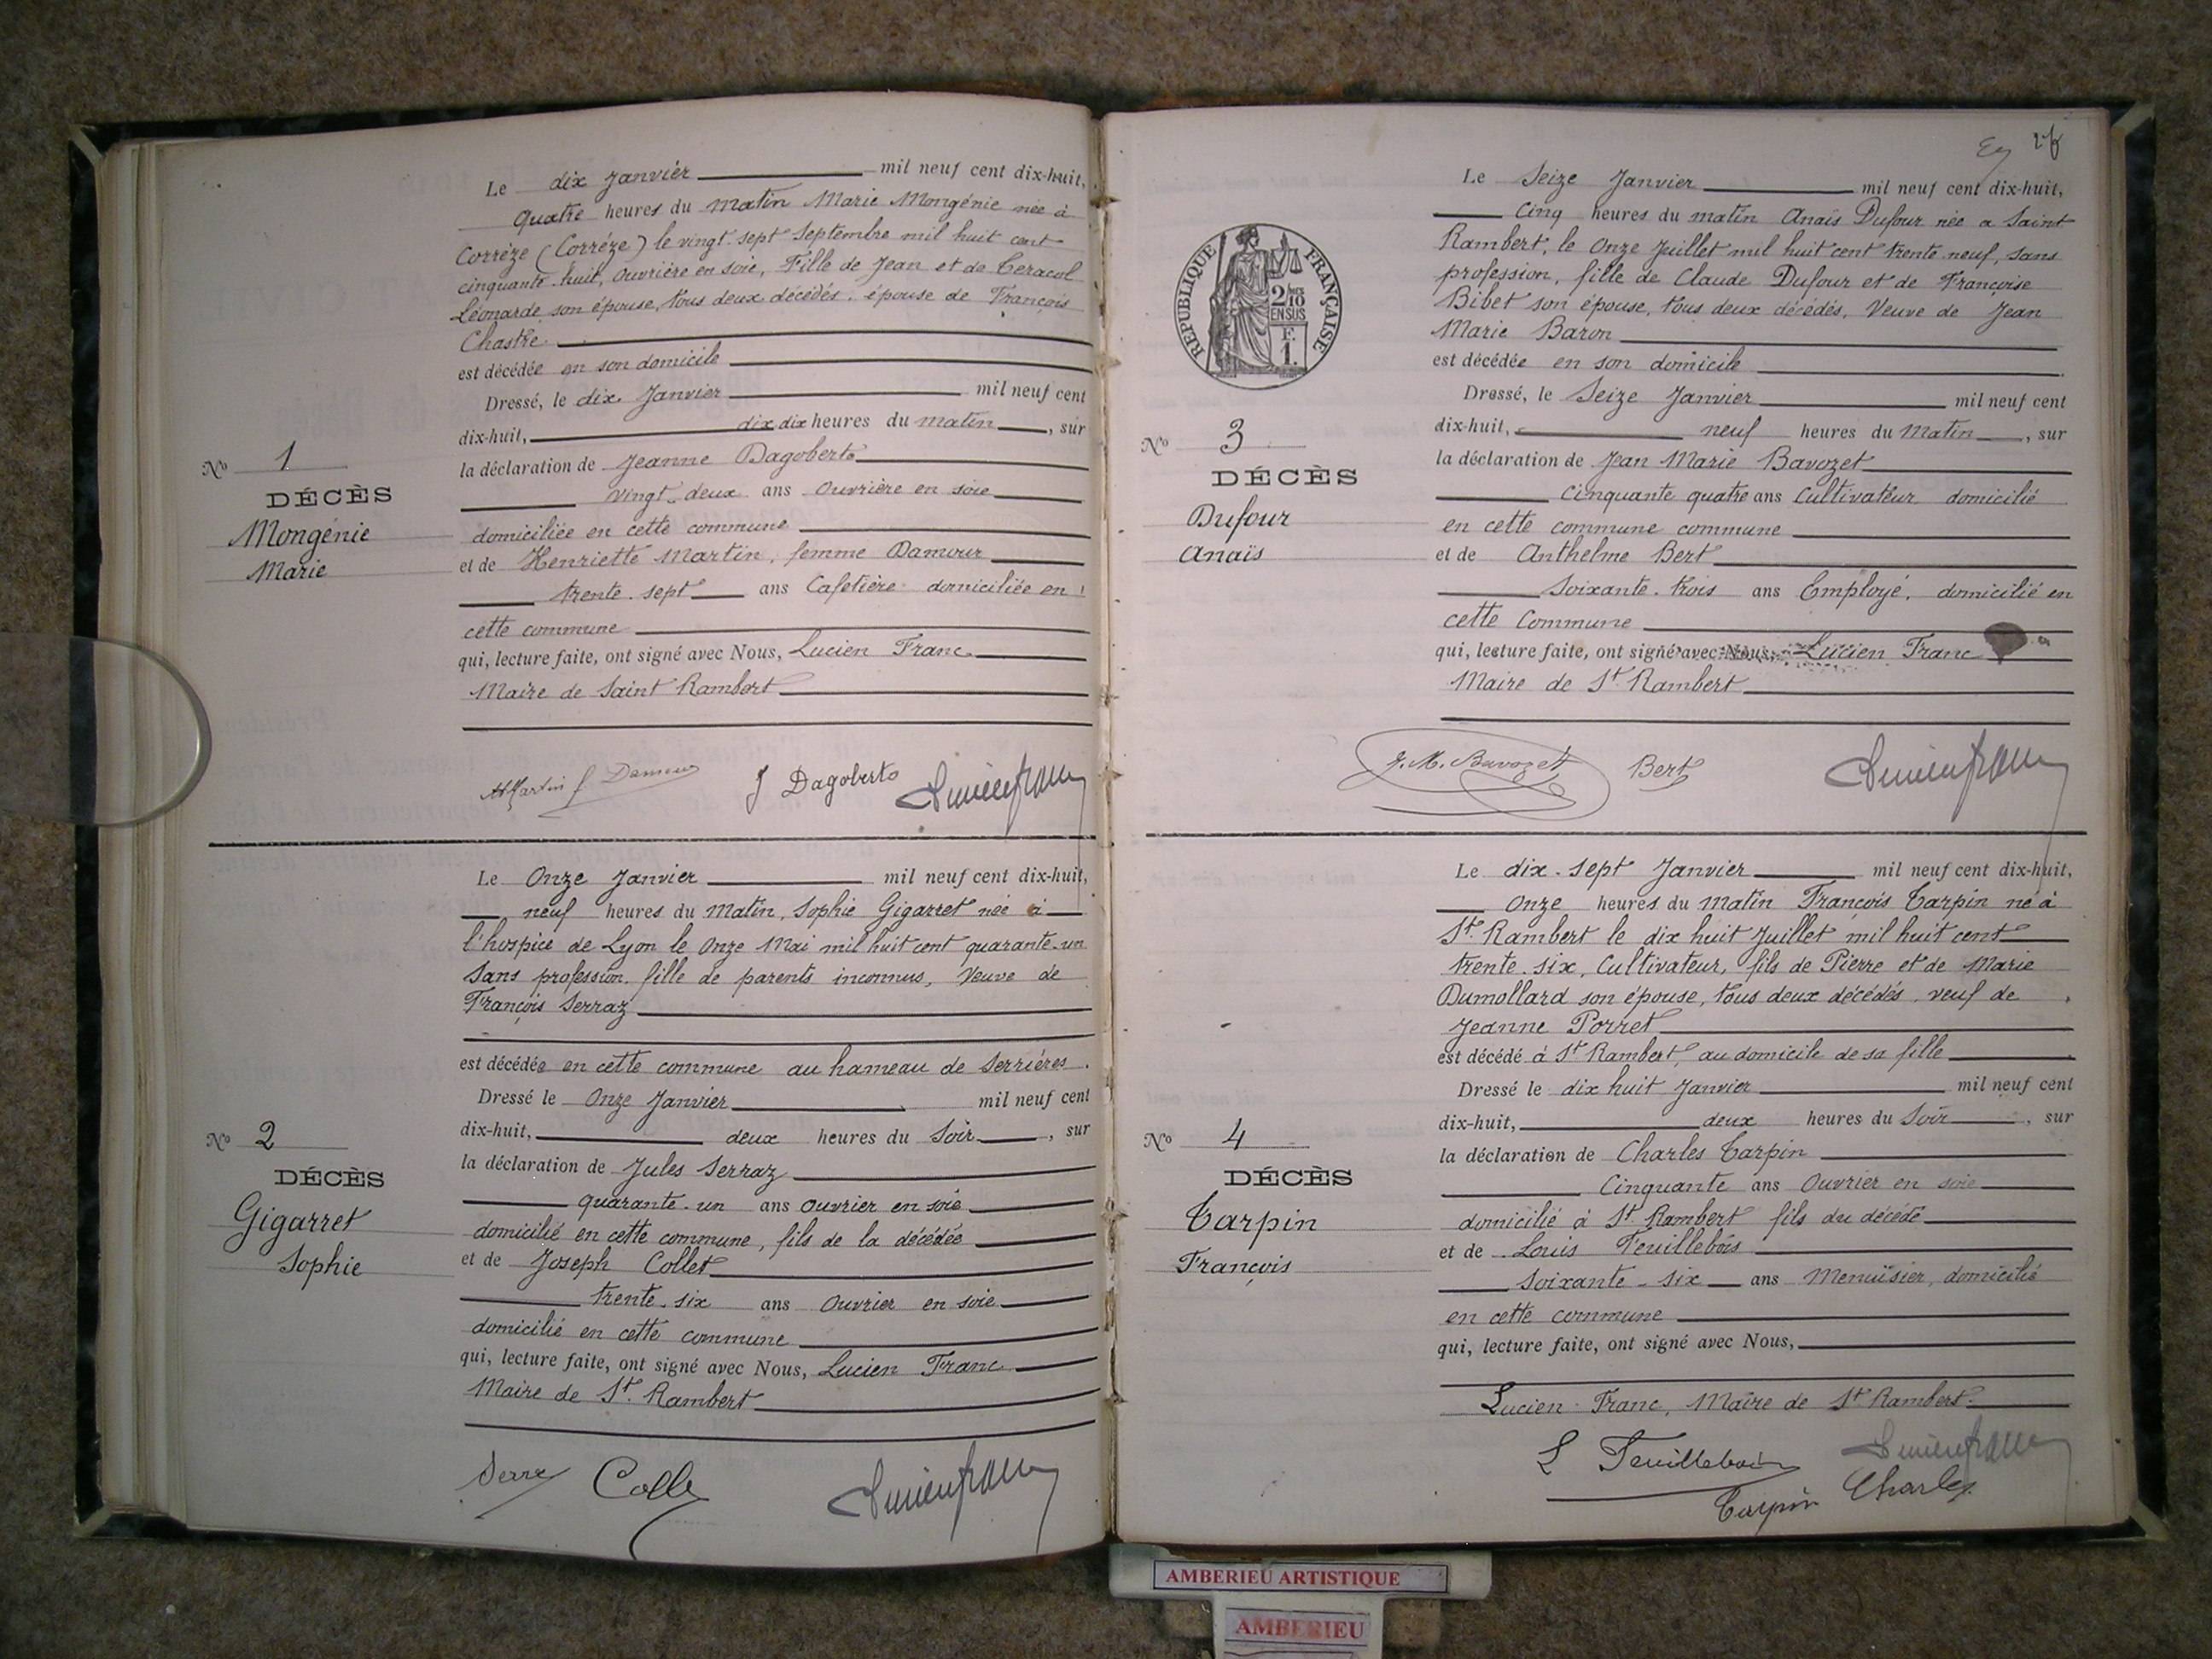 Le dix Janvier mil neuf cent dix-huit,
quatre heures du matin Marie Mongénie née à
Corrèze (Corrèze) le vingt-sept Septembre mil huit cent
cinquante-huit, Ouvrière en soie, Fille de Jean et de Ceracol
Léonarde son épouse, tous deux décédés. épouse de François
Chastre
est décédée en son domicile
Dressé, le dix Janvier mil neuf cent
dix-huit, dix dix heures du matin, sur
la déclaration de Jeanne Dagoberto
vingt-deux ans Ouvrière en soie
domiciliée en cette commune
et de Henriette Martin, femme Damour
trente-sept ans Cafetière domiciliée en
cette commune
qui, lecture faite, ont signé avec Nous, Lucien Franc
Maire de Saint Rambert
No 1
DÉCÈS
Mongénie
Marie
HMartin f Damour J Dagoberto Lucien Franc
Le Onze Janvier mil neuf cent dix-huit,
neuf heures du Matin, Sophie Gigarret née à
l'hospice de Lyon le Onze Mai mil huit cent quarante-un
Sans profession, fille de parents inconnus, Veuve de
François Serraz
est décédée en cette commune au hameau de Serrières.
Dressé le Onze Janvier mil neuf cent
dix-huit, deux heures du Soir, sur
la déclaration de Jules Serraz
quarante-un ans ouvrier en soie
domicilié en cette commune, fils de la décédée
et de Joseph Collet
trente-six ans Ouvrier en soie
domicilié en cette commune
qui, lecture faite, ont signé avec Nous, Lucien Franc
Maire de St. Rambert
No 2
DÉCÈS
Gigarret
Sophie
Lucien Franc
Le Seize Janvier mil neuf cent dix-huit,
Cinq heures du matin Anaïs Dufour née a Saint
Rambert, le Onze Juillet mil huit cent trente neuf, sans
profession, fille de Claude Dufour et de Françoise
Bibet son épouse, tous deux décédés, Veuve de Jean
Marie Baron
est décédée en son domicile
Dressé, le Seize Janvier mil neuf cent
dix-huit, neuf heures du Matin, sur
la déclaration de Jean Marie Bavozet
Cinquante quatre ans Cultivateur domicilié
en cette commune commune
et de Anthelme Bert
Soixante-trois ans Employé, domicilié en
cette Commune
qui, lecture faite, ont signé avec Nous, Lucien Franc
Maire de St Rambert
RÉPUBLIQUE FRANÇAISE
2/10
EN SUS
F.
1.
No 3
DÉCÈS
Dufour
Anaïs
J. M. Bavozet Bert Lucien Franc
Le dix-sept Janvier mil neuf cent dix-huit,
Onze heures du Matin François Tarpin né à
St. Rambert le dix huit Juillet mil huit cent
trente-six, Cultivateur, fils de Pierre et de Marie
Dumollard son épouse, tous deux décédés, veuf de
Jeanne Porret
est décédé à St Rambert, au domicile de sa fille
Dressé le dix huit Janvier mil neuf cent
dix-huit, deux heures du Soir, sur
la déclaration de Charles Tarpin
Cinquante ans Ouvrier en soie
domicilié à St Rambert fils du décédé
et de Louis Feuillebois
Soixante-six ans Menuisier, domicilié
en cette commune
qui, lecture faite, ont signé avec Nous,
Lucien Franc, Maire de St Rambert.
No 4
DÉCÈS
Tarpin
François
L Feuillebois Lucien Franc
Tarpin Charles
AMBERIEU ARTISTIQUE
AMBERIEU